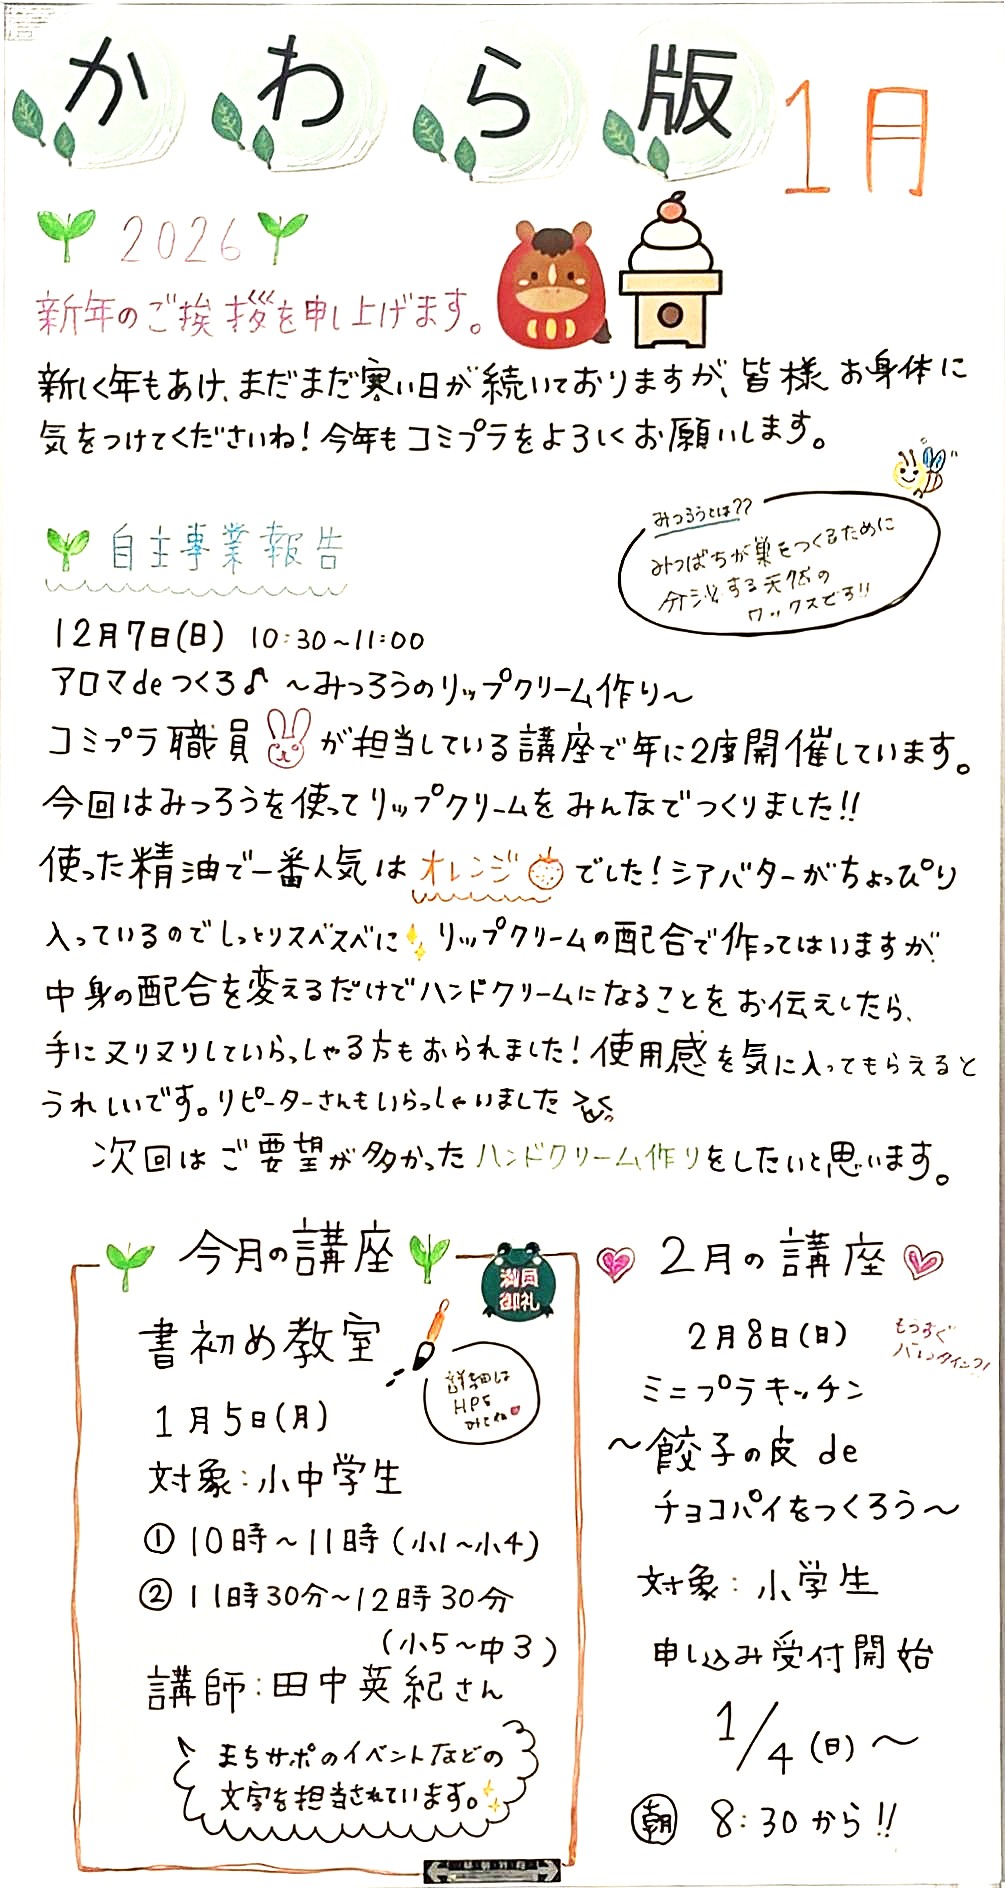 かわら版 1月
2026
新年のご挨拶を申し上げます。
新しく年もあけ、まだまだ寒い日が続いておりますが、皆様お身体に
気をつけてくださいね!今年もコミプラをよろしくお願いします。
みつろうとは??
みつばちが巣をつくるために
分泌する天然の
ワックスです!!
自主事業報告
12月7日(日) 10:30~11:00
アロマdeつくろ♪ ~みつろうのリップクリーム作り~
コミプラ職員が担当している講座で年に2度開催しています。
今回はみつろうを使ってリップクリームをみんなでつくりました!!
使った精油で一番人気はオレンジでした!シアバターがちょっぴり
入っているのでしっとりスベスベに リップクリームの配合で作ってはいますが
中身の配合を変えるだけでハンドクリームになることをお伝えしたら、
手にヌリヌリしていらっしゃる方もおられました!使用感を気に入ってもらえると
うれしいです。リピーターさんもいらっしゃいました
次回はご要望が多かったハンドクリーム作りをしたいと思います。
今月の講座
満員
御礼
書初め教室
詳細は
HPを
みてね
1月5日(月)
対象:小中学生
① 10時~11時(小1~小4)
② 11時30分~12時30分
(小5~中3)
講師:田中英紀さん
まちサポのイベントなどの
文字を担当されています。
2月の講座
2月8日(日)
もうすぐ
バレンタイン♡!
ミニプラキッチン
~餃子の皮de
チョコパイをつくろう~
対象:小学生
申し込み受付開始
1/4(日)~
朝 8:30から!!